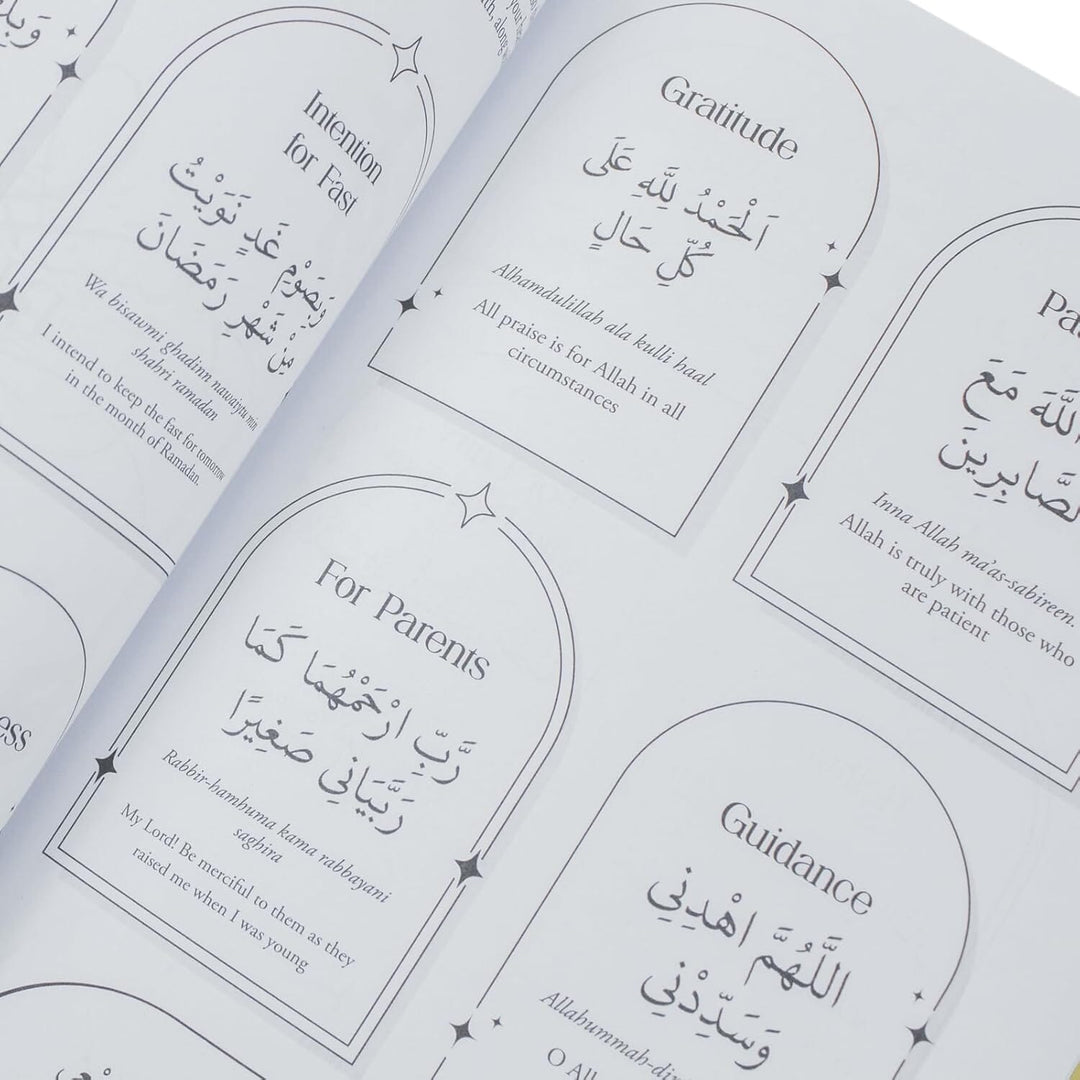 Intention
for Fast
وَبِصَوْمِ غَدٍ نَوَيْتُ
مِنْ شَهْرِ رَمَضَانَ
Wa bisawmi ghadinn nawaiytu min
shahri ramadan
I intend to keep the fast for tomorrow
in the month of Ramadan.
Gratitude
اَلْحَمْدُ لِلَّهِ عَلَى
كُلِّ حَالٍ
Alhamdulillah ala kulli haal
All praise is for Allah in all
circumstances
اللَّهَ مَعَ
الصَّابِرِينَ
Inna Allah ma'as-sabireen.
Allah is truly with those who
are patient
For Parents
رَّبِّ ارْحَمْهُمَا كَمَا
رَبَّيَانِي صَغِيرًا
Rabbir-hamhuma kama rabbayani
saghira
My Lord! Be merciful to them as they
raised me when I was young
Guidance
اللَّهُمَّ اهْدِنِي
وَسَدِّدْنِي
O